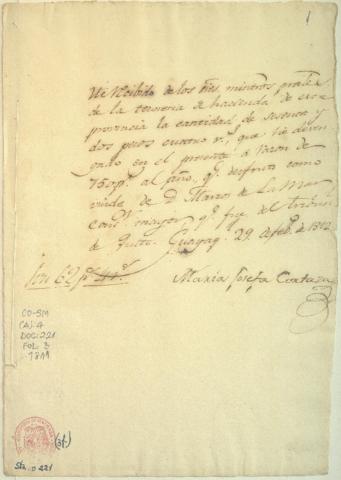 1
He recibido de los Sres ministros prales
de la tesoreria de hacienda de esta
provincia la cantidad de sesenta y
dos pesos cuatro rs, que he deven
gado en el presente a razon de
750 ps al año, qe disfruto como
viuda de D Marcos de La Mar
contr mayor qe fue del tribunal
de Quito. Guayaq. 29 de feb. de 1842
Son 62 ps 4 rs
Maria Josefa Cortazar
CO-SM
(A): 4
DOC: 221
FOL: 3
(3f.)
Sta. D 221